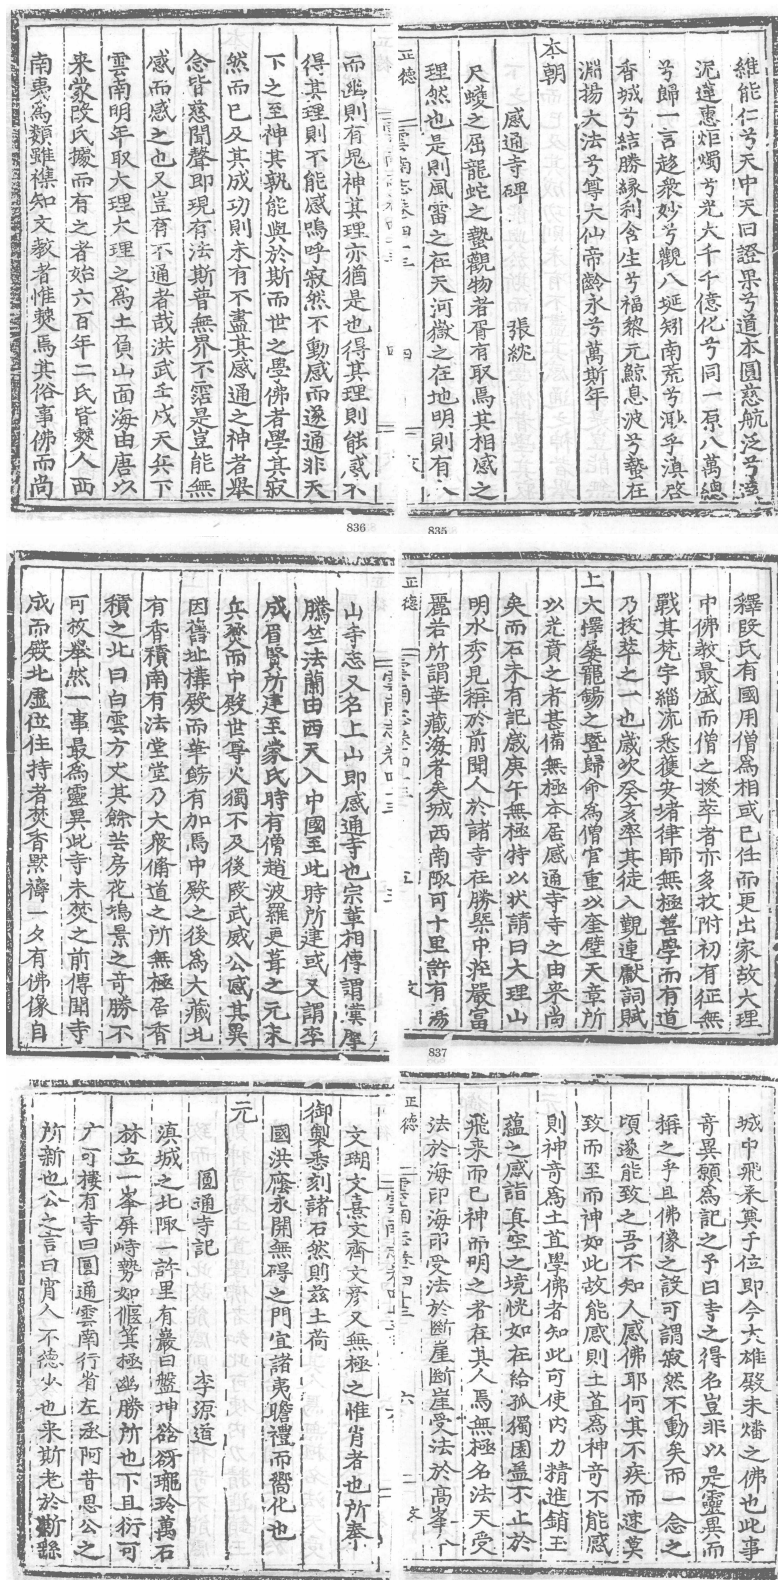 維能仁兮天中天曰證果兮道本圓慈航泛兮
泥蓮惠炬燭兮光大千千億化兮同一原八萬總
兮歸一言超衆妙兮觀八埏矧南荒兮乎滇啓
香城兮結勝緣利含生兮福黎元鯨息波兮蟄在
淵揚大法兮尊大仙帝齡永兮萬斯年
本朝
感通寺碑 張紞
尺蠖之屈龍蛇之蟄觀物者胥有取焉其相感之
理然也是則風雷之在天河嶽之在地明則有人
正德 雲南志卷四十三 四 文
835
而幽則有鬼神其理亦猶是也得其理則能感不
得其理則不能感嗚呼寂然不動感而遂通非天
下之至神其孰能與於斯而世之學佛者學其寂
然而已及其成功則未有不盡其感通之神者舉
念皆慈聞聲即現有法斯普無界不霑是豈能無
感而感之也又豈有不通者哉洪武壬戌天兵下
雲南明年取大理大理之爲土負山面海由唐以
來蒙段氏據而有之者始六百年二氏皆僰人西
南夷爲類雖襍知文教者惟僰焉其俗事佛而尚
836
釋段氏有國用僧爲相或已任而更出家故大理
中佛教最盛而僧之拔萃者亦多故附初有征無
戰其梵宇緇流悉獲安堵律師無極善學而有道
乃拔萃之一也歲次癸亥率其徒入覲連獻詞賦
上大擇鑾龍錫之暨歸命爲僧官重以奎璧天章所
以光賁之者甚備無極本居感通寺寺之由來尚
矣而石未有記歲庚午無極特以狀請曰大理山
明水秀見稱於前聞人於諸寺在勝槩中莊嚴富
麗若所謂華藏海者矣城西南陬可十里許有蕩
正德 雲南志卷四十三 五 文
837
山寺志又名上山即感通寺也宗革相傳謂漢摩
騰竺法蘭由西天入中國至此時所建或又謂李
成眉賢所建至蒙氏時有僧趙波羅更葺之元末
兵燹而中殿世尊火獨不及後段武威公感其異
因舊址構殿而華飾有加焉中殿之後爲大藏北
有香積南有法堂堂乃大衆脩道之所無極居香
積之北曰白雲方丈其餘芸房花塢景之奇勝不
可枚舉然一事最爲靈異此寺未焚之前傳聞寺
成而殿北虛位住持者焚香默禱一夕有佛像自
城中飛來奠于位即今大雄殿未燔之佛也此事
竒異願爲記之予曰寺之得名豈非以是靈異而
稱之乎且佛像之設可謂寂然不動矣而一念之
頃遂能致之吾不知人感佛耶何其不疾而速莫
致而至而神如此故能感則土苴爲神竒不能感
則神竒爲土苴學佛者知此可使內力精進銷五
蘊之感詣真空之境恍如在給孤獨園蓋不止於
飛來而已神而明之者在其人焉無極名法天受
法於海印海印受法於斷崖斷崖受法於高峯
正德 雲南志卷四十三 六 文
文瑚文熹文齊文彥又無極之惟肖者也所奉
御製悉刻諸石然則茲土荷
國洪庥永開無碍之門宜諸夷瞻禮而嚮化也
元
圓通寺記 李源道
滇城之北陬一許里有巖曰盤坤谽谺瓏玲萬石
林立一峯屏峙勢如偃箕極幽勝所也下且衍可
广可樓有寺曰圓通雲南行省左丞阿昔思公之
所新也公之言曰宵人不德少也來斯老於斯